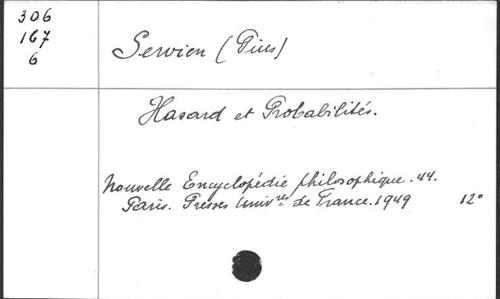 306
167
6
Servien (Pius)
Hasard et Probabilités.
Nouvelle Encyclopédie philosophique. 44.
Paris. Presses Univ.res de France. 1949 12°